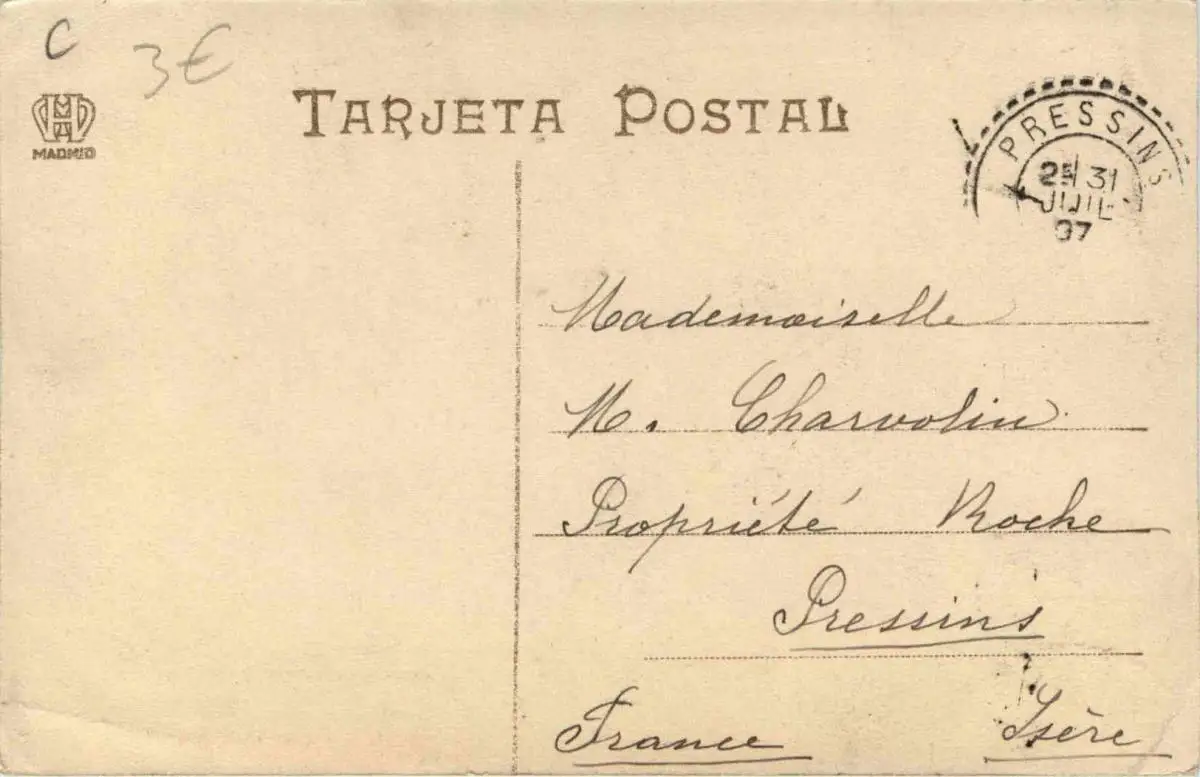 C
3€
MADRID
TARJETA POSTAL
PRESSINS
2E 31
JUIL
07
Mademoiselle
M. Charvolin
Propriété Roche
Pressins
France Isère